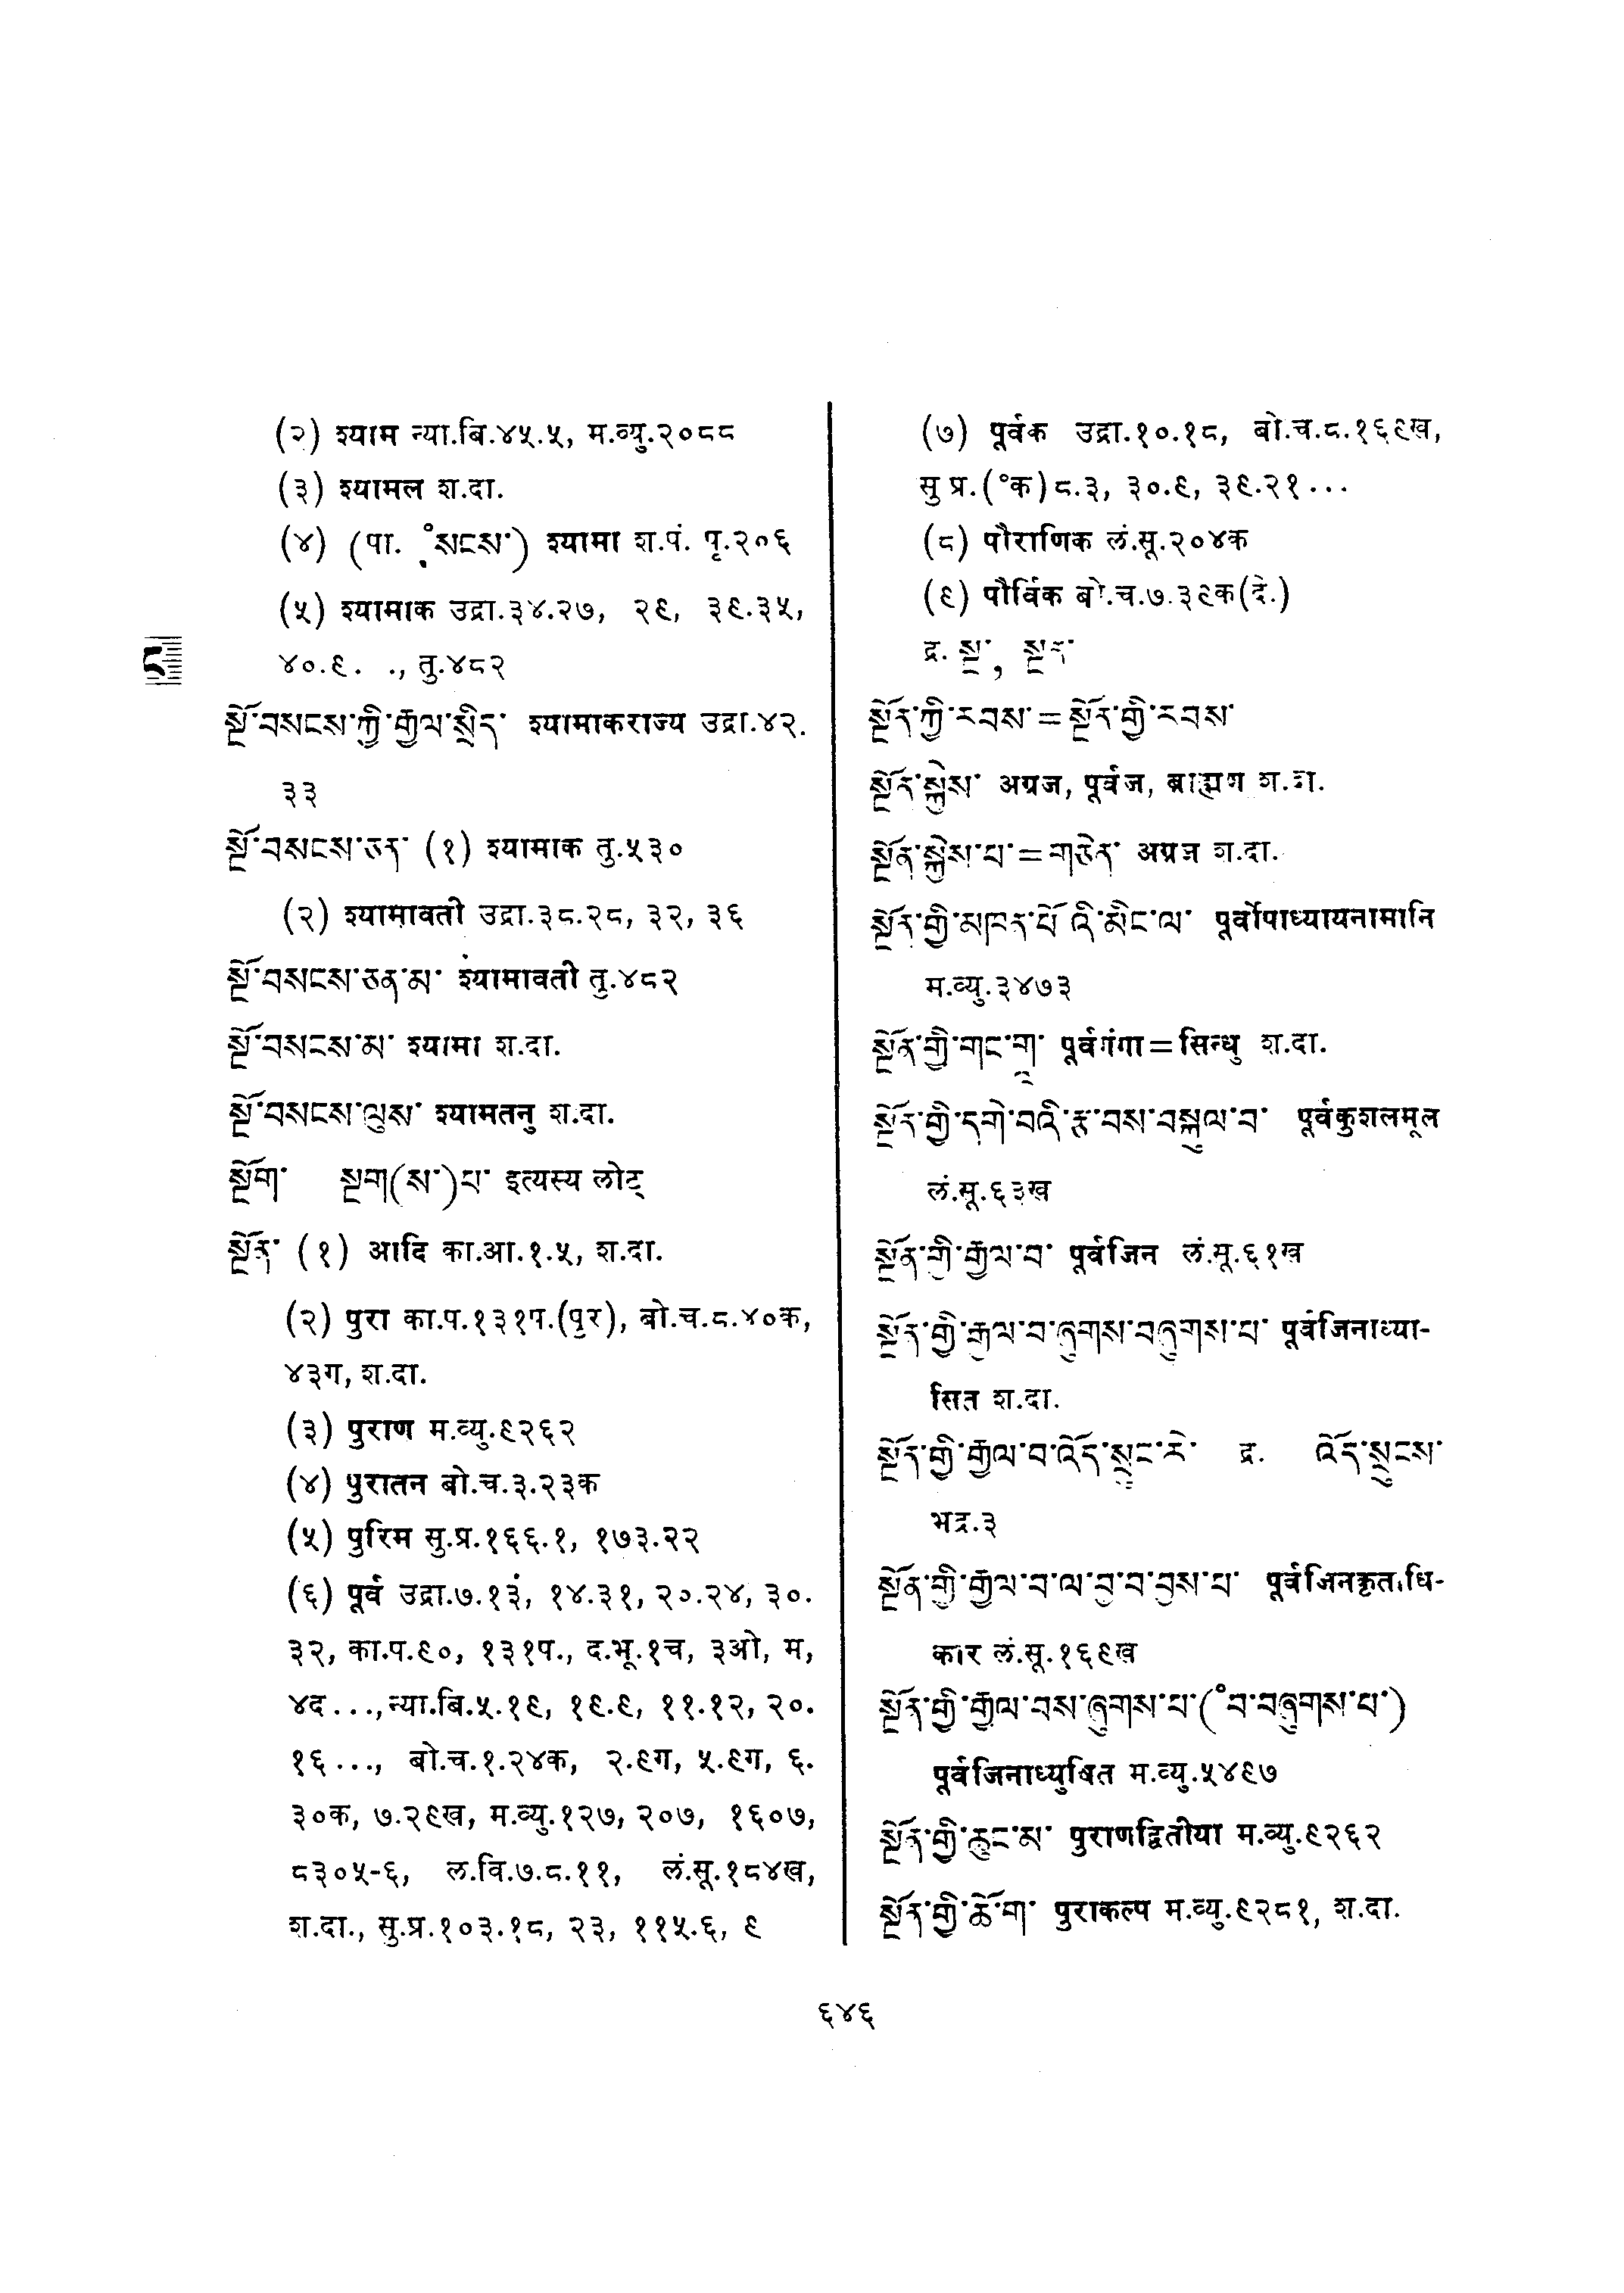 (२) श्याम न्या.बि.४५.५, म.व्यु.२०८८
(३) श्यामल श.दा.
(४) (पा. ॰སངས་) श्यामा श.पं. पृ.२०६
(५) श्यामाक उद्रा.३४.२७, २९, ३९.३५,
४०.९. ., तु.४८२
སྔོ་བསངས་ཀྱི་རྒྱལ་སྲིད་ श्यामाकराज्य उद्रा.४२.
३३
སྔོ་བསངས་ཅན་ (१) श्यामाक तु.५३०
(२) श्यामावती उद्रा.३८.२८, ३२, ३६
སྔོ་བསངས་ཅན་མ་ श्यामावती तु.४८२
སྔོ་བསངས་མ་ श्यामा श.दा.
སྔོ་བསངས་ལུས་ श्यामतनु श.दा.
སྔོག་ སྔག(ས་)པ་ इत्यस्य लोट्
སྔོན་ (१) आदि का.आ.१.५, श.दा.
(२) पुरा का.प.१३१प.(पूर), बो.च.८.४०क,
४३ग, श.दा.
(३) पुराण म.व्यु.९२६२
(४) पुरातन बो.च.३.२३क
(५) पुरिम सु.प्र.१६६.१, १७३.२२
(६) पूर्व उद्रा.७.१३, १४.३१, २०.२४, ३०.
३२, का.प.९०, १३१प., द.भू.१च, ३ओ, म,
४द ...,न्या.बि.५.१९, १९.९, ११.१२, २०.
१६ ..., बो.च.१.२४क, २.९ग, ५.९ग, ६.
३०क, ७.२९ख, म.व्यु.१२७, २०७, १६०७,
८३०५-६, ल.वि.७.८.११, लं.सू.१८४ख,
श.दा., सु.प्र.१०३.१८, २३, ११५.६, ९
(७) पूर्वक उद्रा.१०.१८, बो.च.८.१६९ख,
सु प्र.(॰क)८.३, ३०.९, ३९.२१ ...
(८) पौराणिक लं.सू.२०४क
(९) पौर्विक बो.च.७.३९क(दे.)
द्र. སྔ་, སྔན་
སྔོན་ཀྱི་རབས་ = སྔོན་གྱི་རབས་
སྔོན་སྐྱེས་ अग्रज, पूर्वज, ब्राह्मण
སྔོན་སྐྱེས་པ་ = གཅེན་ अग्रज श.दा.
སྔོན་གྱི་མཁན་པོ འི་མིང་ལ་ पूर्वोपाध्यायनामानि
म.व्यु.३४७३
སྔོན་གྱི་གང་གཱ་ पूर्वगंगा = सिन्धु श.दा.
སྔོན་གྱི་དགེ་བའི་རྩ་བས་བསྐུལ་བ་ पूर्वकुशलमूल
लं.सू.६३ख
སྔོན་གྱི་རྒྱལ་བ་ पूर्वजिन लं.सू.६१ख
སྔོན་གྱི་རྒྱལ་བ་ཞུགས་བཞུགས་པ་ पूर्वजिनाध्या-
सित श.दा.
སྔོན་གྱི་རྒྱལ་བ་འོད་སྲུང་རེ་ द्र. འོད་སྲུངས་
भद्र.३
སྔོན་གྱི་རྒྱལ་བ་ལ་བྱ་བ་བྱས་པ་ पूर्वजिनकृताधि-
कार लं.सू.१६९ख
སྔོན་གྱི་རྒྱལ་བས་ཞུགས་པ་(॰བ་བཞུགས་པ་)
पूर्वजिनाध्युषित म.व्यु.५४९७
སྔོན་གྱི་ཆུང་མ་ पुराणद्वितीया म.व्यु.९२६२
སྔོན་གྱི་ཆོ་ག་ पुराकल्प म.व्यु.९२८१, श.दा.
६४६